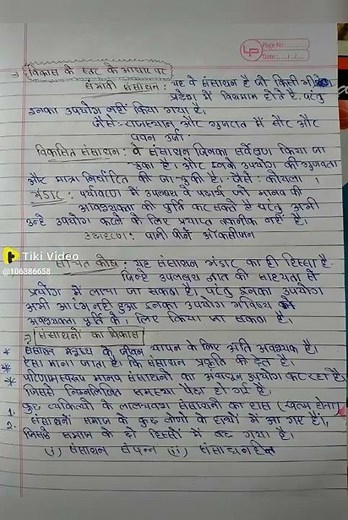 LP
Page No:
Date:
विकास के स्तर के आधार पर
संभावी संसाधन: यह वे संसाधन है जो किसी भी
प्रदेश में विद्यमान होते है, परंतु
इनका उपयोग नहीं किया गया है।
जैसे:- राजस्थान और गुजरात में सौर और
पवन उर्जा
विकसित संसाधन: वे संसाधन जिनका सर्वेक्षण किया जा
चुका है और इनके उपयोग की गुणवता
और मात्रा निर्धारित की जा चुकी है। जैसे: कोयला।
भंडार: पर्यावरण में उपलब्ध वे पदार्थ जो मानव की
आवश्यकता की पुर्ति कर सकते है परंतु अभी
उन्हे उपयोग करने के लिए पर्याप्त तकनीक नहीं है।
उदाहरण: पानी
Tiki Video
@106386658
संचित कोष: यह संसाधन भंडार का ही हिस्सा है
जिन्हे उपलब्ध ज्ञान की सहायता से
प्रयोग में लाया जा सकता है, परंतु इनका उपयोग
अभी आरंभ नहीं हुआ इनका उपयोग भविष्य की
आवश्यकता पूर्ति के लिए किया जा सकता है।
संसाधनों का विकास
* संसाधन मनुष्य के जीवन यापन के लिए अति आवश्यक है।
* ऐसा माना जाता है कि संसाधन प्रकृति की देन है।
* परिणामस्वरूप मानव संसाधनों का अंधाधुंध उपयोग कर रहा है,
जिससे निम्नलिखित समस्या पैदा हो गई है।
1. कुछ व्यक्तियों के लालचवश संसाधनों का ह्रास (खत्म होना)
2. संसाधनों समाज के कुछ लोगों के हाथों में आ गए है।
जिससे समाज के दो हिस्सों में बट गया है।
(i) संसाधन संपन्न (ii) संसाधनहीन